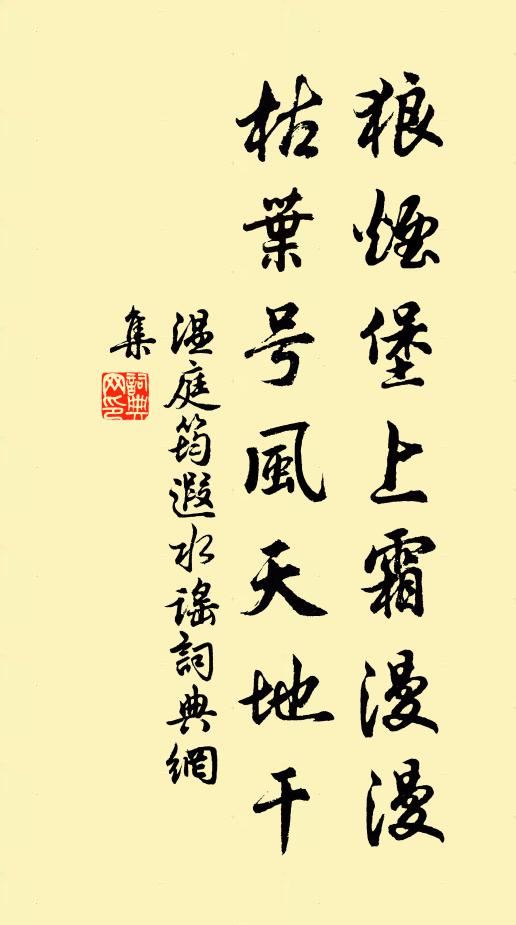 狼煙堡上霜漫漫
枯葉号風天地干
温庭筠遐水謠詞典網
集
詞典網印